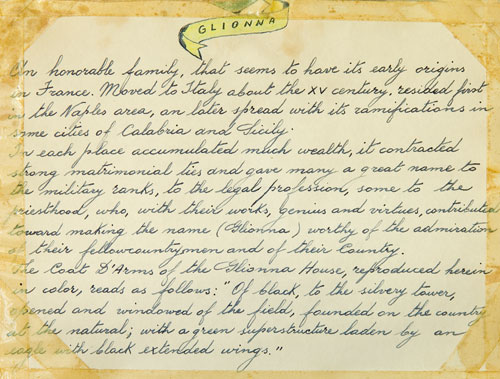 GLIONNA
An honorable family, that seems to have its early origins
in France. Moved to Italy about the XV century, resided first
in the Naples area, an later spread with its ramifications in
some cities of Calabria and Sicily.
In each place accumulated much wealth, it contracted
strong matrimonial ties and gave many a great name to
the military ranks, to the legal profession, some to the
priesthood, who, with their works, genius and virtues, contributed
toward making the name (Glionna) worthy of the admiration
of their fellowcountrymen and of their Country.
The Coat D'Arms of the Glionna House, reproduced herein
in color, reads as follows: "Of black, to the silvery tower,
opened and windowed of the field, founded on the country
at the natural; with a green superstructure laden by an
eagle with black extended wings."